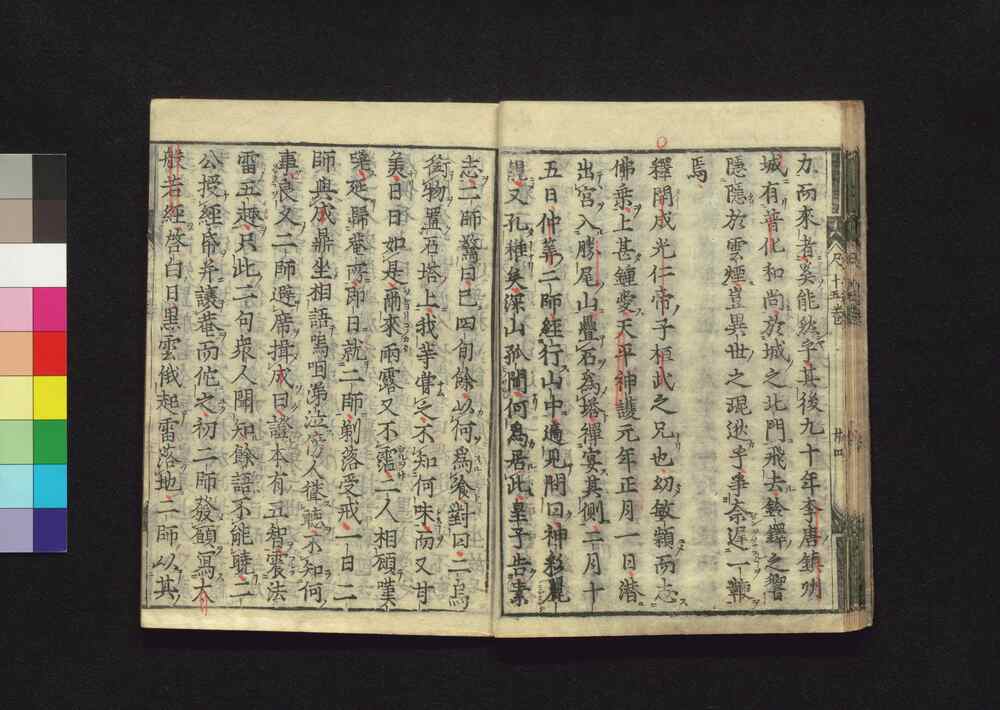 力而來者奚能然乎其後九十年李唐鎮州
城有普化和尚於城之北門飛去鈴鐸之響
隱隱於雲煙豈異世之琨迯乎事奈遅一鞭
焉
釋開成光仁帝子桓武之兄也幼敏頴而志
佛乘上甚鍾愛天平神護元年正月一日潛
出宮入勝尾山疊石為塔禪宴其側二月十
五日仲筭二師經行山中過見問曰神彩麗
又孔稚矣深山孤閴何為居此皇子告素
志二師驚曰已四旬餘以何為飡對曰二烏
銜物置石塔上我等嘗之不知何味而又甘
美日日如是爾來雨露又不霑二人相顧嘆
嗟延歸菴所即日就二師剃落受戒一日二
師與成鼎坐相語嗚咽涕泣傍人徃聽不知何
事良久二師避席揖成曰證本有五智震法
雷五趣只此二句衆人聞知餘語不能聴二
公授經帋并讓菴而佗之初二師發願寫大
般若經啓白日黒雲俄起雷落地二師以其
尺十五巻
廿四